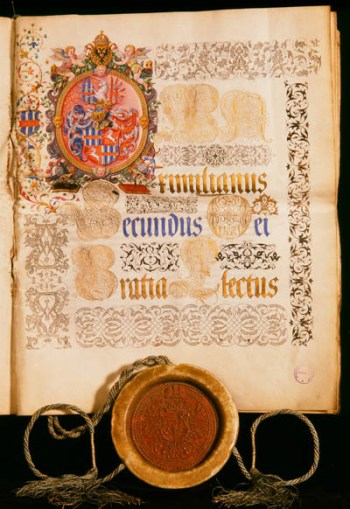 Maximilianus
Secundus Dei
Gratia Electus